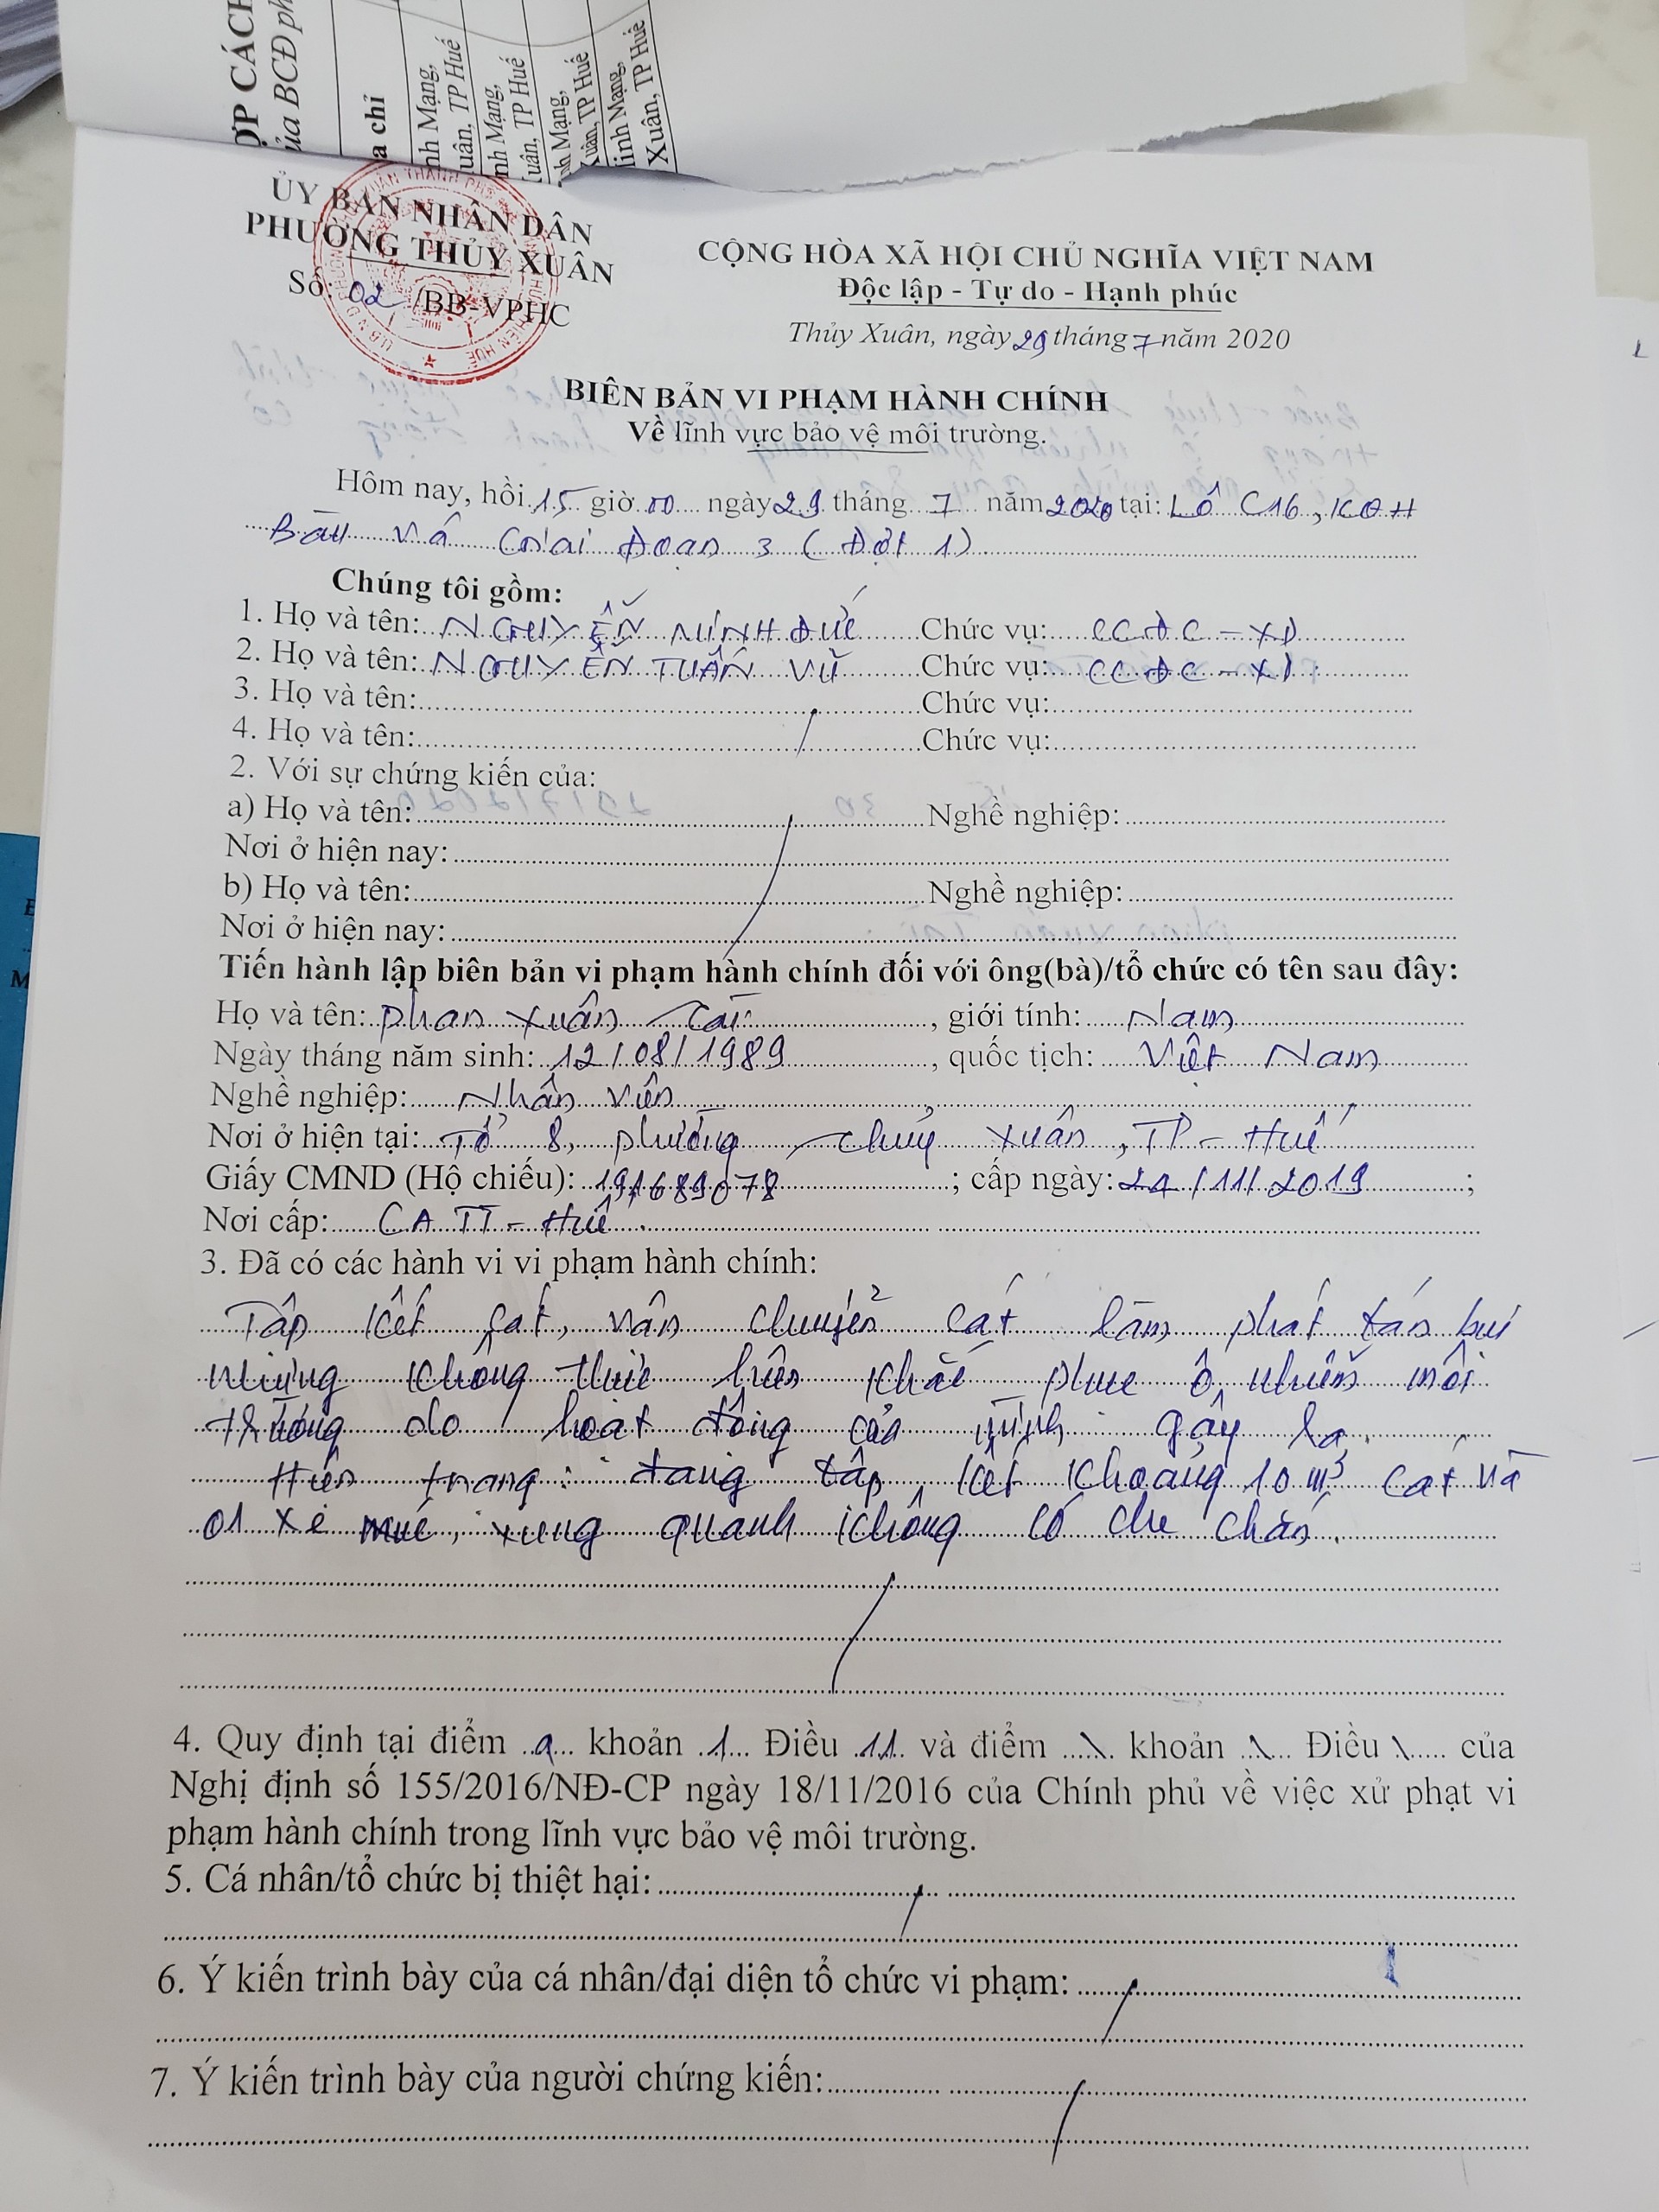 ỢP CÁCH
ủa BCĐ ph
a chỉ
nh Mạng,
uân, TP Huế
nh Mạng,
uân, TP Huế
nh Mạng,
Xuân, TP Huế
Minh Mạng,
Xuân, TP Huế
ỦY BAN NHÂN DÂN
PHƯỜNG THỦY XUÂN
Số: 02 /BB-VPHC
CỘNG HÒA XÃ HỘI CHỦ NGHĨA VIỆT NAM
Độc lập - Tự do - Hạnh phúc
Thủy Xuân, ngày 29 tháng 7 năm 2020
BIÊN BẢN VI PHẠM HÀNH CHÍNH
Về lĩnh vực bảo vệ môi trường.
Hôm nay, hồi 15 giờ 00 ngày 29 tháng 7 năm 2020 tại: Lô C16, KQH
Bàu Vá Giai Đoạn 3 (Đợt 1)
Chúng tôi gồm:
1. Họ và tên: NGUYỄN MINH ĐỨC Chức vụ: CCĐC-XD
2. Họ và tên: NGUYỄN TUẤN VŨ Chức vụ: CCĐC-XD
3. Họ và tên: Chức vụ:
4. Họ và tên: Chức vụ:
2. Với sự chứng kiến của:
a) Họ và tên: Nghề nghiệp:
Nơi ở hiện nay:
b) Họ và tên: Nghề nghiệp:
Nơi ở hiện nay:
Tiến hành lập biên bản vi phạm hành chính đối với ông(bà)/tổ chức có tên sau đây:
Họ và tên: Phan Xuân Tài, giới tính: Nam
Ngày tháng năm sinh: 12/08/1989, quốc tịch: Việt Nam
Nghề nghiệp: Nhân viên
Nơi ở hiện tại: Tổ 8, phường Thuỷ Xuân, TP-Huế
Giấy CMND (Hộ chiếu): 191689078; cấp ngày: 24/11/2019;
Nơi cấp: CA TT-Huế
3. Đã có các hành vi vi phạm hành chính:
Tập kết cát, vận chuyển cát làm phát tán bụi
nhưng không thực hiện khắc phục ô nhiễm môi
trường do hoạt động của mình gây ra.
Hiện trạng: đang tập kết khoảng 10 m³ cát và
01 xe múc, xung quanh không có che chắn.
4. Quy định tại điểm a khoản 1 Điều 11 và điểm \ khoản \ Điều \ của
Nghị định số 155/2016/NĐ-CP ngày 18/11/2016 của Chính phủ về việc xử phạt vi
phạm hành chính trong lĩnh vực bảo vệ môi trường.
5. Cá nhân/tổ chức bị thiệt hại:
6. Ý kiến trình bày của cá nhân/đại diện tổ chức vi phạm:
7. Ý kiến trình bày của người chứng kiến: